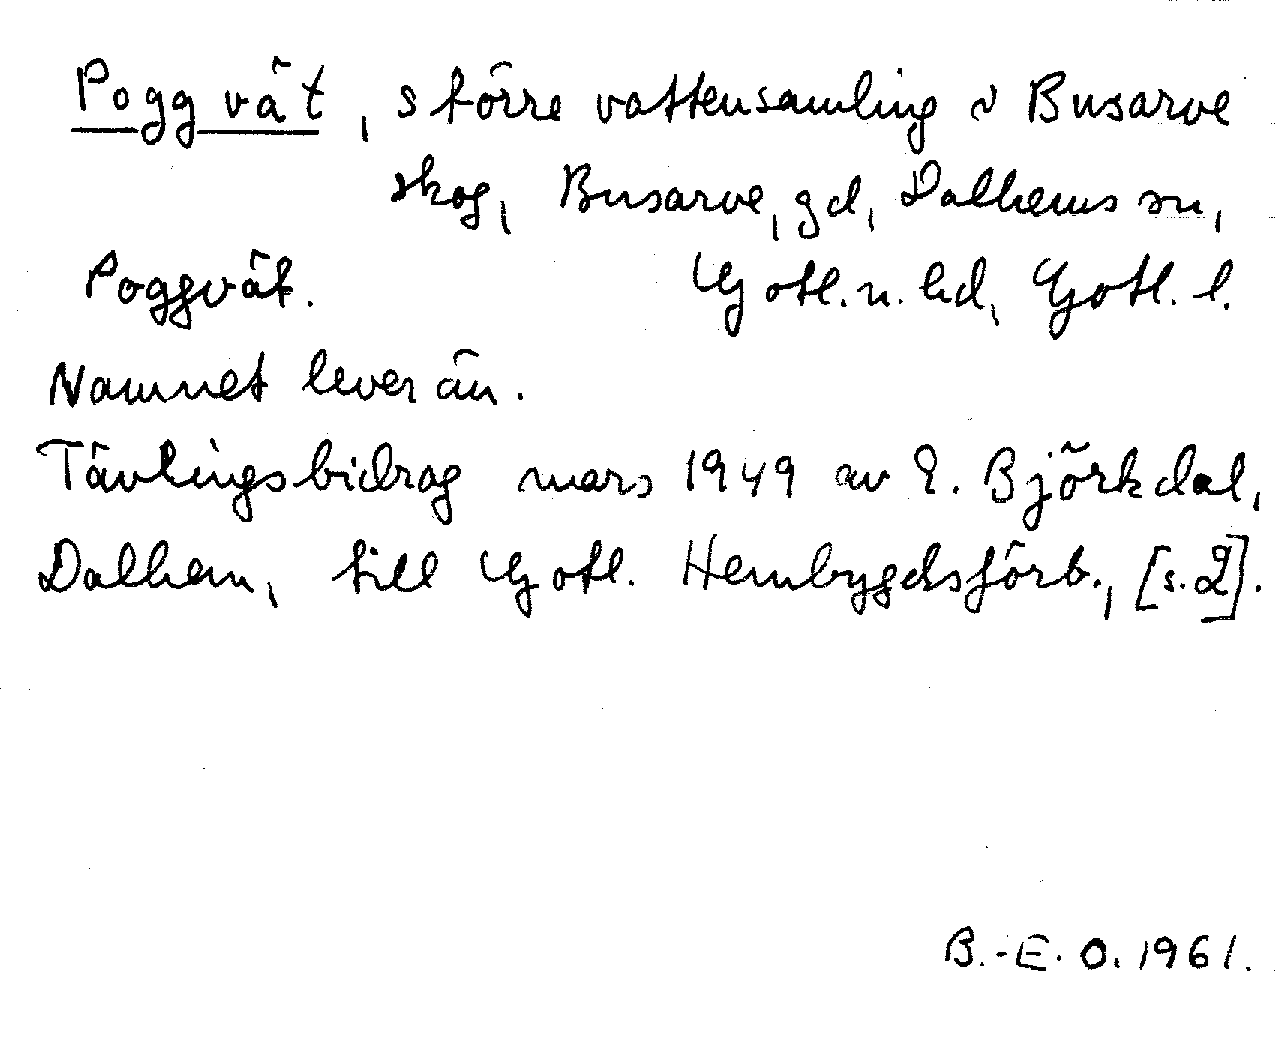 Poggvät, större vattensamling i Busarve
skog, Busarve, gd, Dalhems sn,
Poggvät. Gotl. n. hd, Gotl. l.
Namnet lever än.
Tävlingsbidrag mars 1949 av E. Björkdal,
Dalhem, till Gotl. Hembygdsförb., [s. 2].
B.-E. O. 1961.